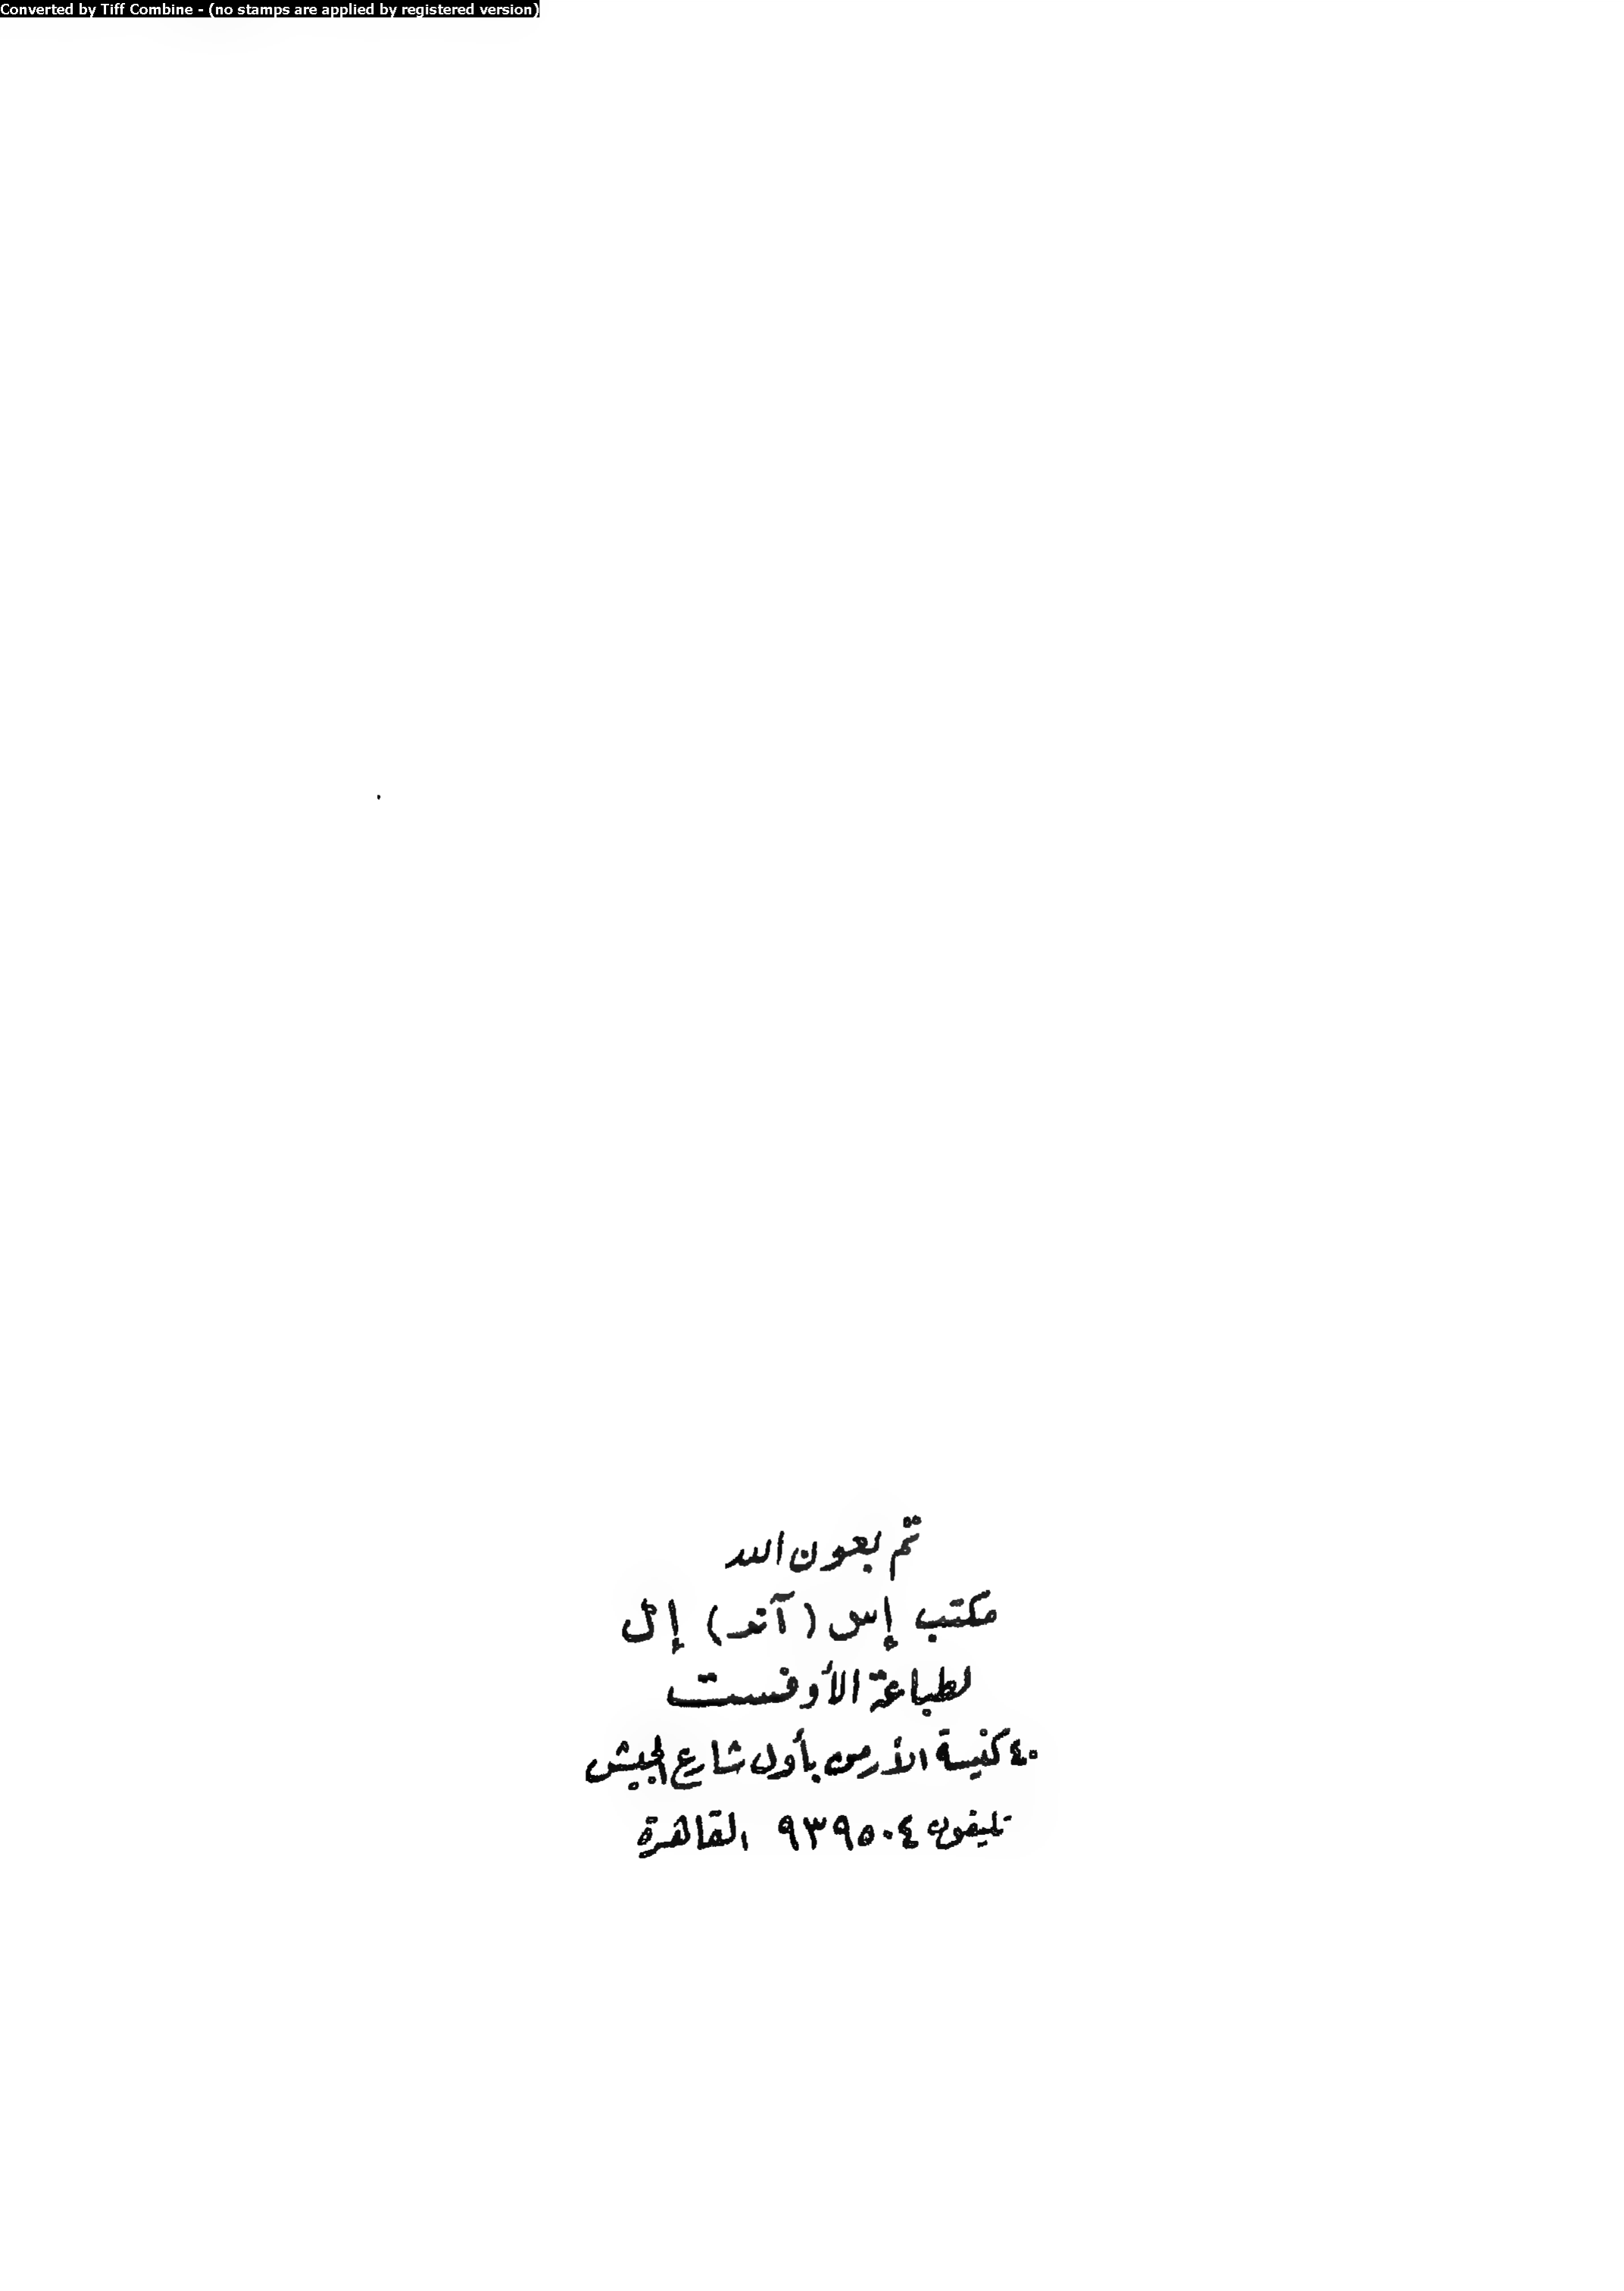 Converted by Tiff Combine - (no stamps are applied by registered version)
تم بعون الله
مكتب إس (آند) إل
لطباعة الأوفست
٤٠ كنيسة الأرمن بأول شارع الجيش
تليفون ٩٣٩٥٠٤ القاهرة